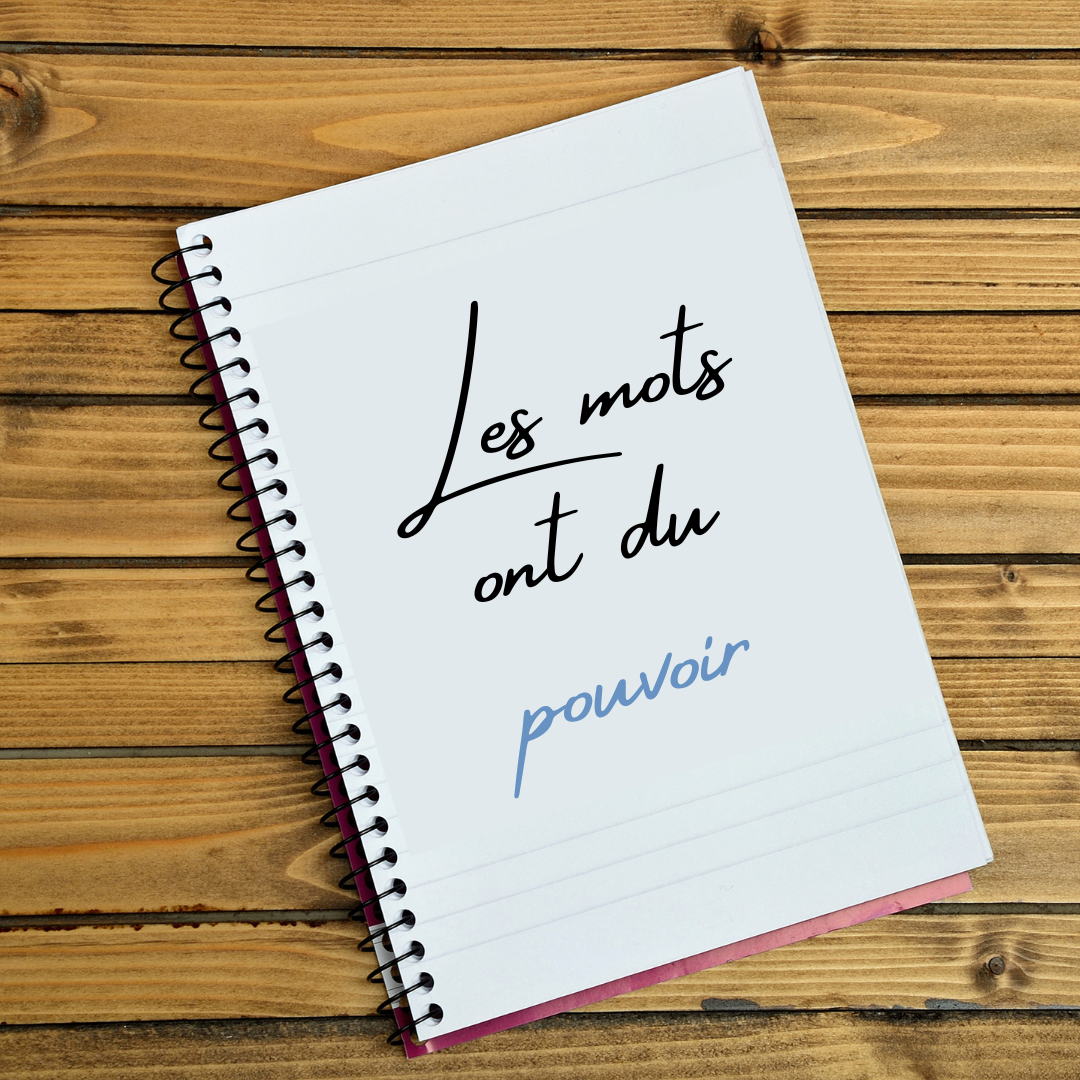 Les mots
ont du
pouvoir